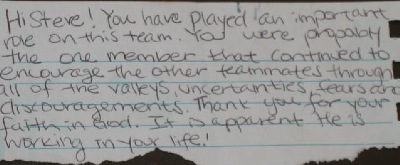 Hi Steve! You have played an important
role on this team. You were propably
the one member that continued to
encourage the other teammates through
all of the valleys, uncertainties, fears and
discouragements. Thank you for your
faith in God. It is apparent He is
working in your life!